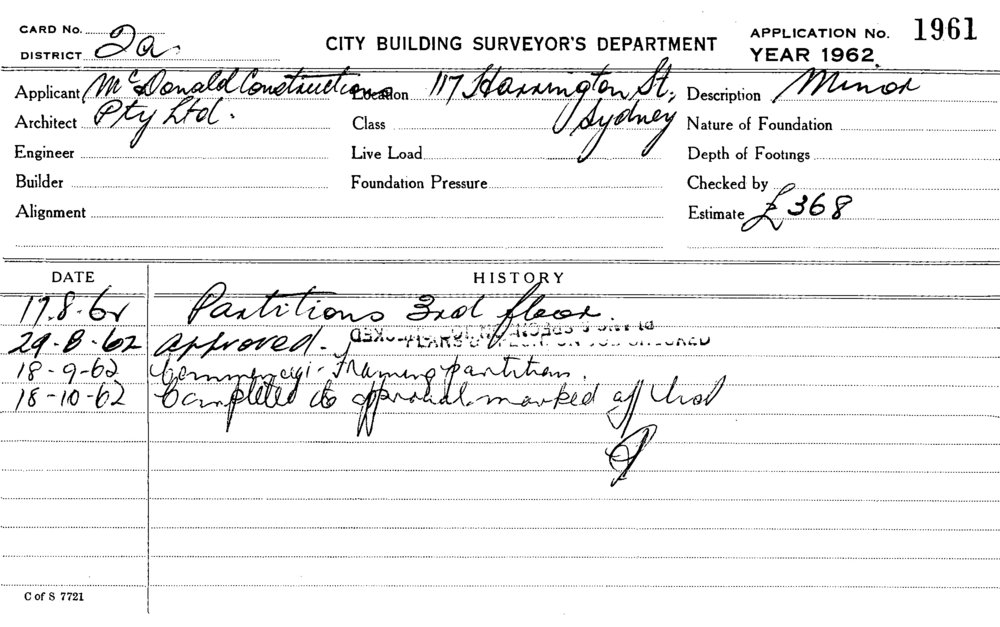 CARD No. 2a
DISTRICT
CITY BUILDING SURVEYOR'S DEPARTMENT
APPLICATION No. 1961
YEAR 1962.
Applicant McDonald Constructions
Pty Ltd.
Location 117 Harrington St,
Sydney
Description Minor
Architect
Class
Nature of Foundation
Engineer
Live Load
Depth of Footings
Builder
Foundation Pressure
Checked by
Alignment
Estimate £368
DATE
HISTORY
17.8.62 Partitions 3rd floor.
29-8-62 approved.
18-9-62 Framing partition.
18-10-62 Completed to approval marked off
C of S 7721